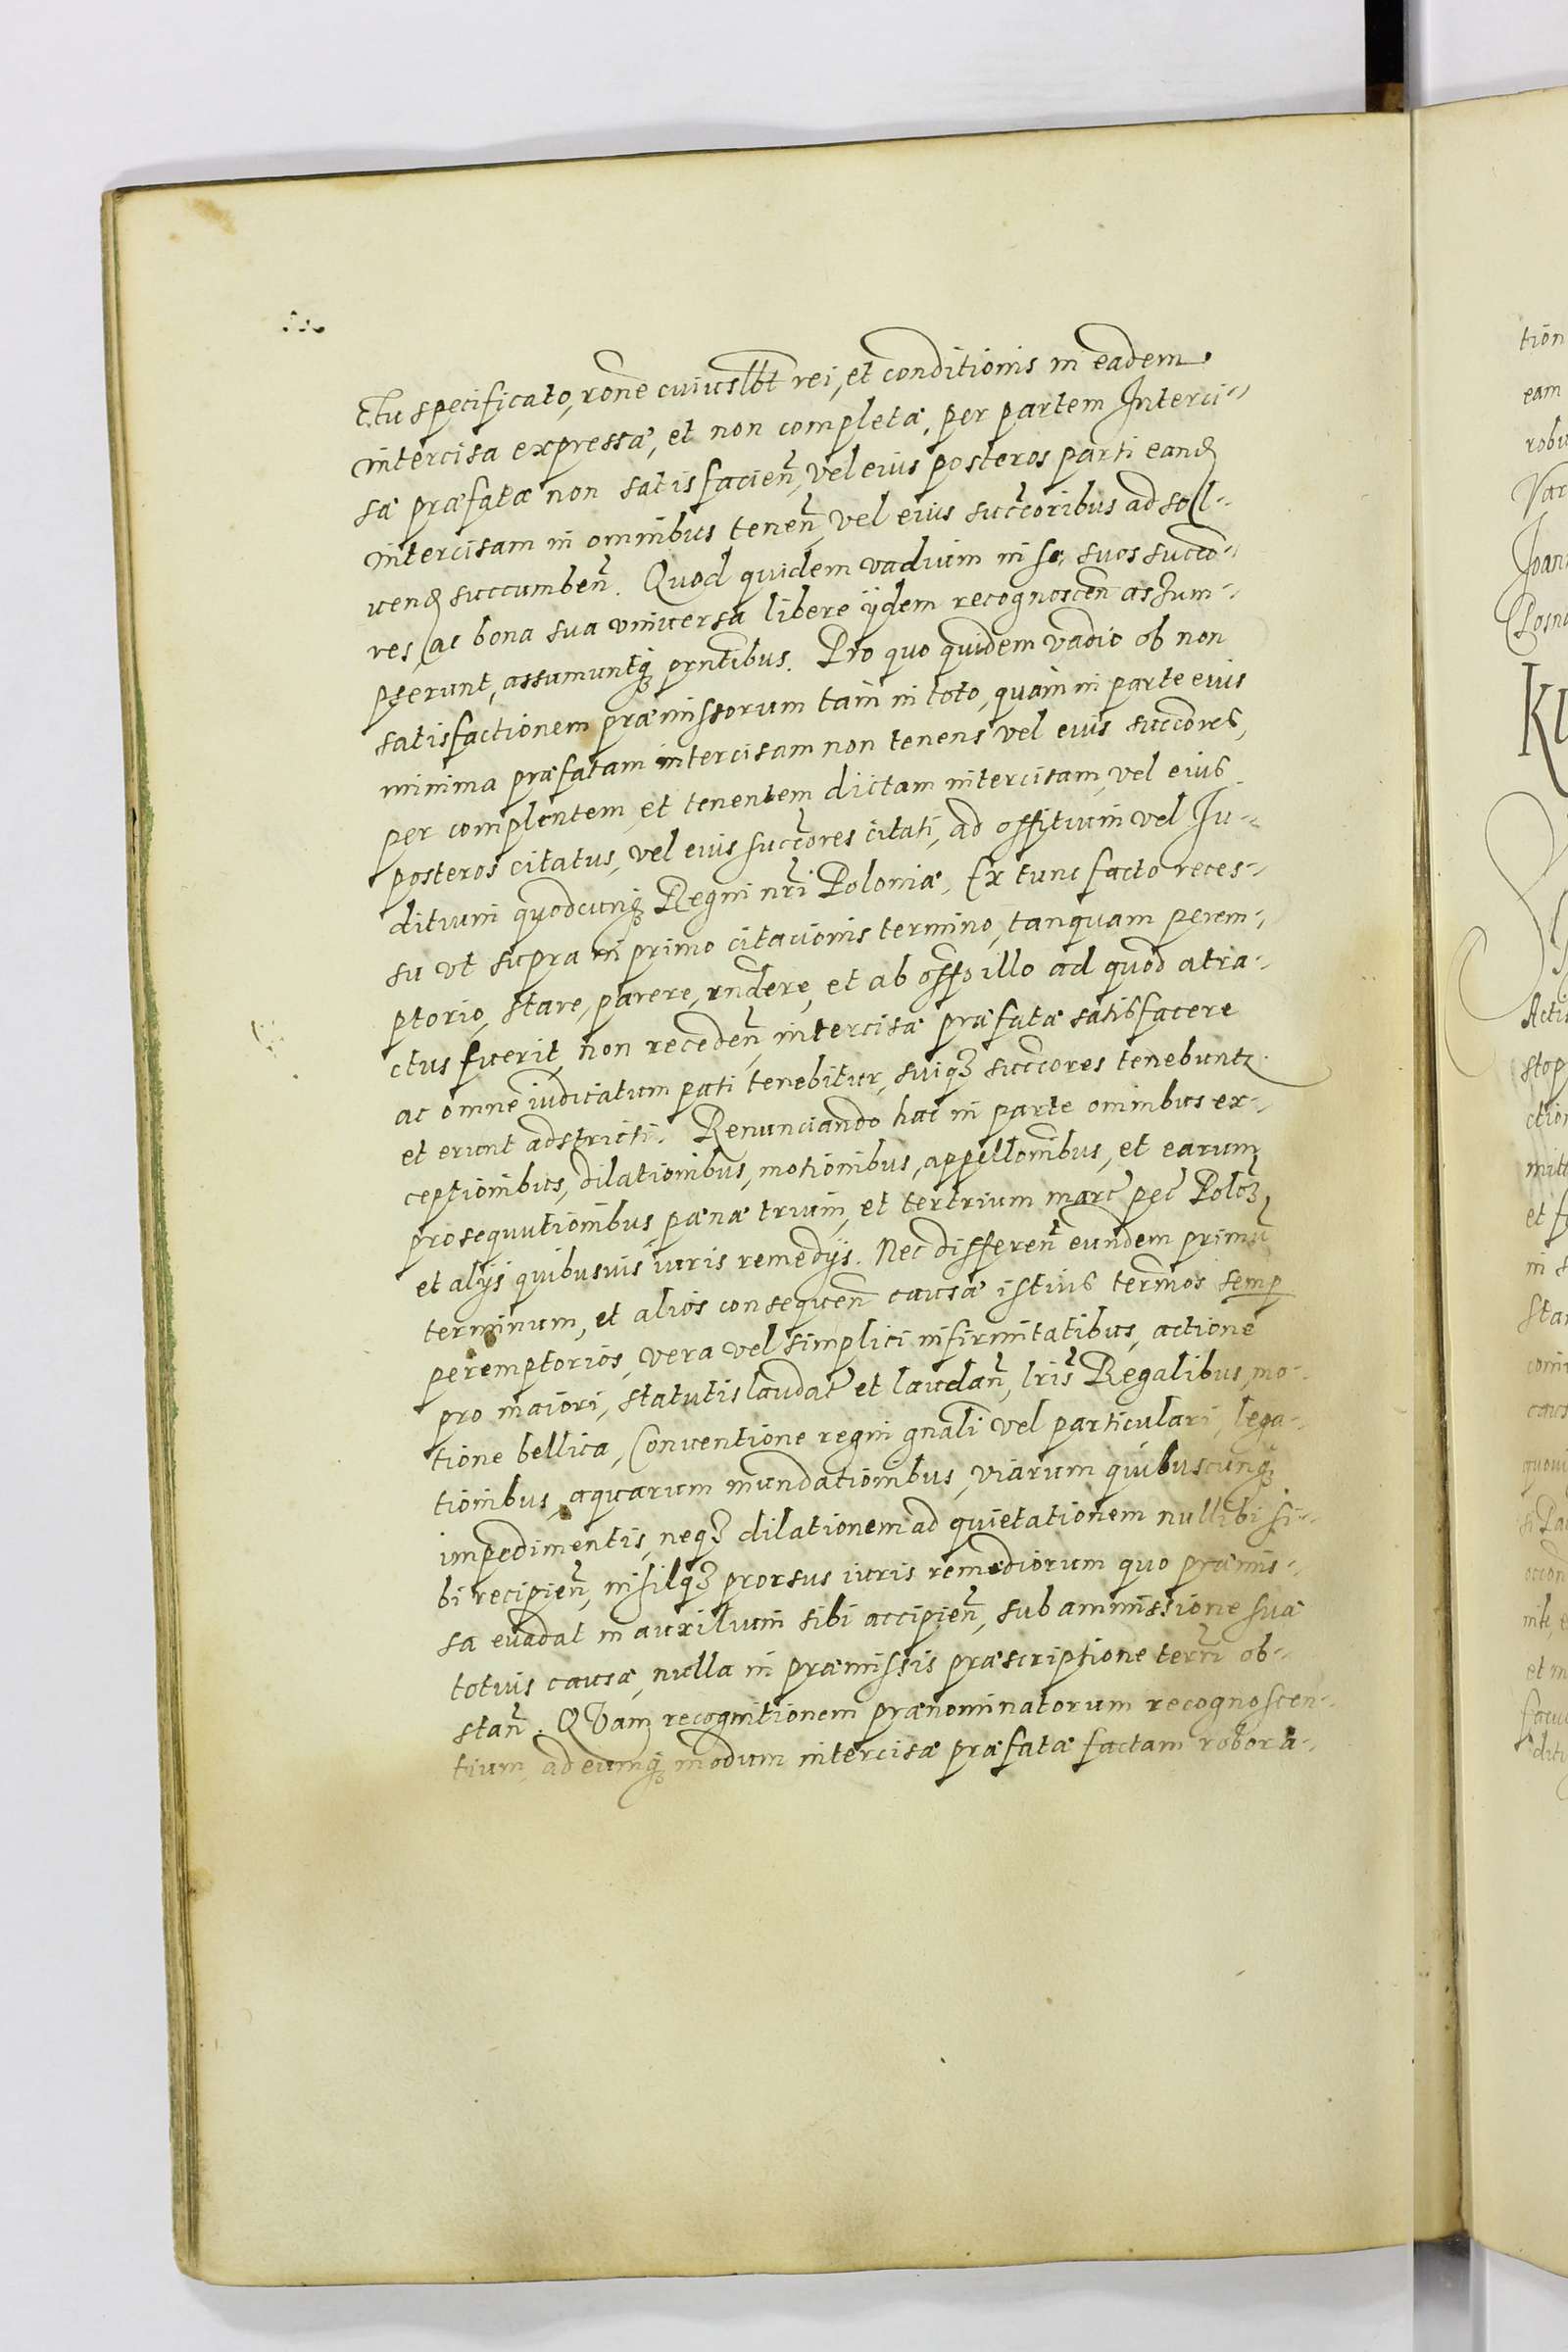 ctu specificato, rone cuiuslbt rei, et conditionis in eadem
intercisa expressæ, et non completæ, per partem Interci-
sæ præfatæ non satisfacien, vel eius posteros parti eand
intercisam in omnibus tenen vel eius succoribus ad sol-
uend succumben. Quod quidem vadium in se, suos succo-
res, ac bona sua vniuersa libere ijdem recognoscen assum-
pserunt, assumuntq prntibus. Pro quo quidem vadio ob non
satisfactionem præmissorum tam in toto, quam in parte eius
minima præfatam intercisam non tenens vel eius succores,
per complentem, et tenentem dictam intercisam, vel eius
posteros citatus, vel eius succores citati, ad offitium vel Ju-
ditium quodcunq Regni nri Poloniæ, Ex tunc facto reces-
su vt supra in primo citacionis termino, tanquam perem-
ptorio, stare, parere, rndere, et ab offo illo ad quod attra-
ctus fuerit, non receden, intercisæ præfatæ satisfacere
ac omne iudicatum pati tenebitur, suiq succores tenebunt
et erunt adstricti. Renunciando hac in parte omnibus ex-
ceptionibus, dilationibus, motionibus, appellonibus, et earum
prosequutionibus, pænæ trium, et tertrium marc pec Polc
et alijs quibusuis iuris remedijs. Nec differen eundem primu
terminum, et alios consequen causæ istius termos semp
peremptorios, vera vel simplici infirmitatibus, actione
pro maiori, statutis laudat et laudan, lris Regalibus, mo-
tione bellica, Conuentione regni gnali vel particulari, lega-
tionibus, aquarum inundationibus, viarum quibuscunq
impedimentis, neq dilationem ad quietationem nullibi si-
bi recipien, nihilq prorsus iuris remediorum quo præmis-
sa euadat in auxilium sibi accipien, sub ammissione suæ
totius causæ, nulla in præmissis præscriptione terri ob-
stan. QVam recognitionem prænominatorum recognoscen-
tium, ad eumq modum intercisæ præfatæ factam robora-